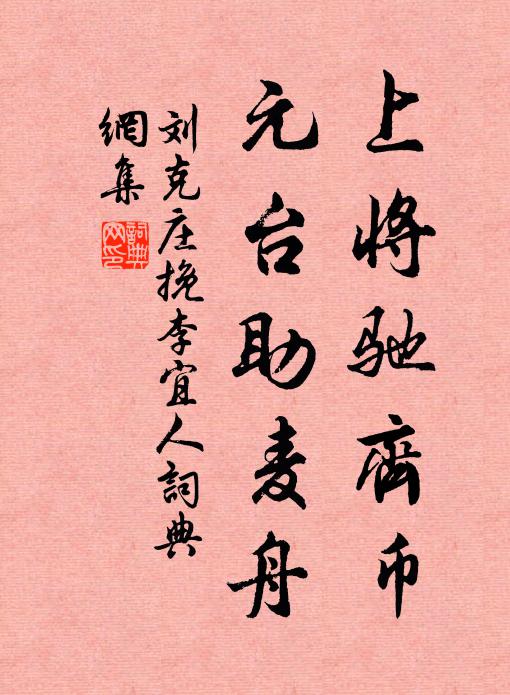 上将驰齊币
元台助麦舟
刘克庄挽李宜人詞典
網集
詞典網印